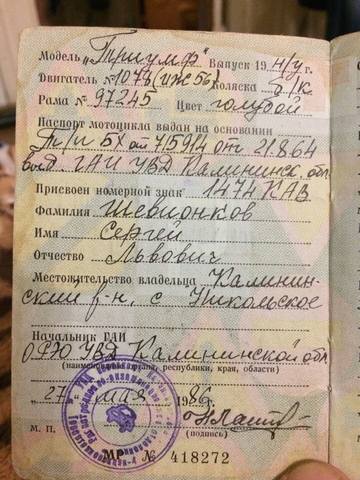 Модель „Триумф" Выпуск 19 н/у г.
Двигатель № 1078 (иж 56) Коляска б/к
Рама № 97245 Цвет голубой
Паспорт мотоцикла выдан на основании
Т/п БХ от 21864
выд. ГАИ УВД Калининск. обл
Присвоен номерной знак 1474 КАВ
Фамилия Шевионков
Имя Сергей
Отчество Львович
Местожительство владельца Калинин-
ский р-н, с Никольское
Начальник ГАИ
ОРЭО УВД Калининской обл
(наименование района, республики, края, области)
„27" мая 1986 г.
М. П. (подпись)
МР № 418272